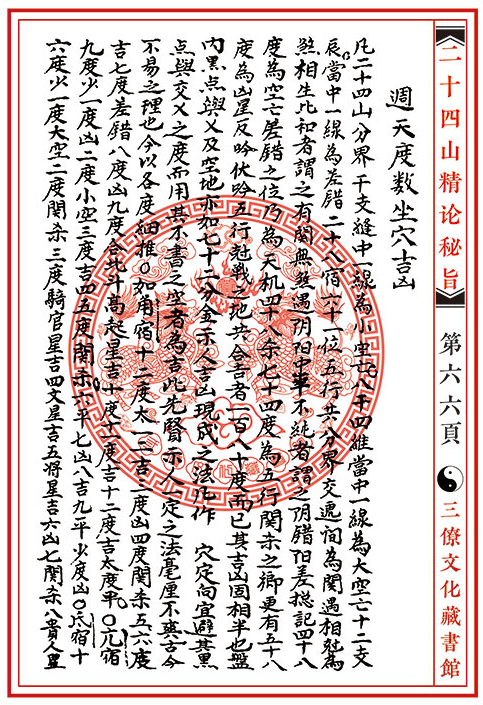 二十四山精论秘旨
第六六頁
三僚文化藏書館
週天度数坐穴吉凶
凡二十四山分界干支縫中一線為小空亡八干四維當中一線為大空亡十二支
辰當中一線為差错二十八宿六十一位五行共分界交遞间為関遇相尅為
煞相生比和者謂之有関無煞遇阴阳中華不純者謂之阴錯阳差捴記四十八
度為空亡差错之位乃為天机四十八杀七十四度為五行関杀之鄉更有五十八
度為凶星反吟伏吟五行尅戰之地共合吉者一百八十度而已其吉凶固相半也盤
内黑点與乂及空地亦如七十二分金示人吉凶現成之法凡作 穴定向宜避其黒
点與交乂之度而用其不書之空者為吉此先賢示人一定之法毫厘不爽古今
不易之理也今以各度細推〇如角宿十二度太一二吉三度凶四度関杀五六度
吉七度差錯八度凶九度合北斗高起星吉十度十一度吉十二度吉太度平〇亢宿
九度少一度凶二度小空三度吉四五度関杀六平七凶八吉九平少度凶〇氐宿十
六度少一度大空二度関杀三度騎官星吉四文星吉五将星吉六凶七関杀八貴人星